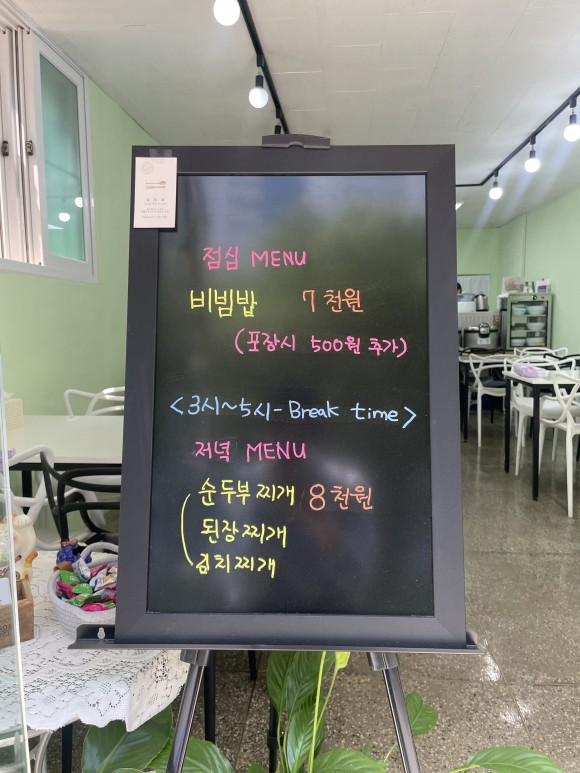 점심 MENU
비빔밥 7천원
(포장시 500원 추가)
<3시~5시-Break time>
저녁 MENU
순두부찌개 8천원
된장찌개
김치찌개